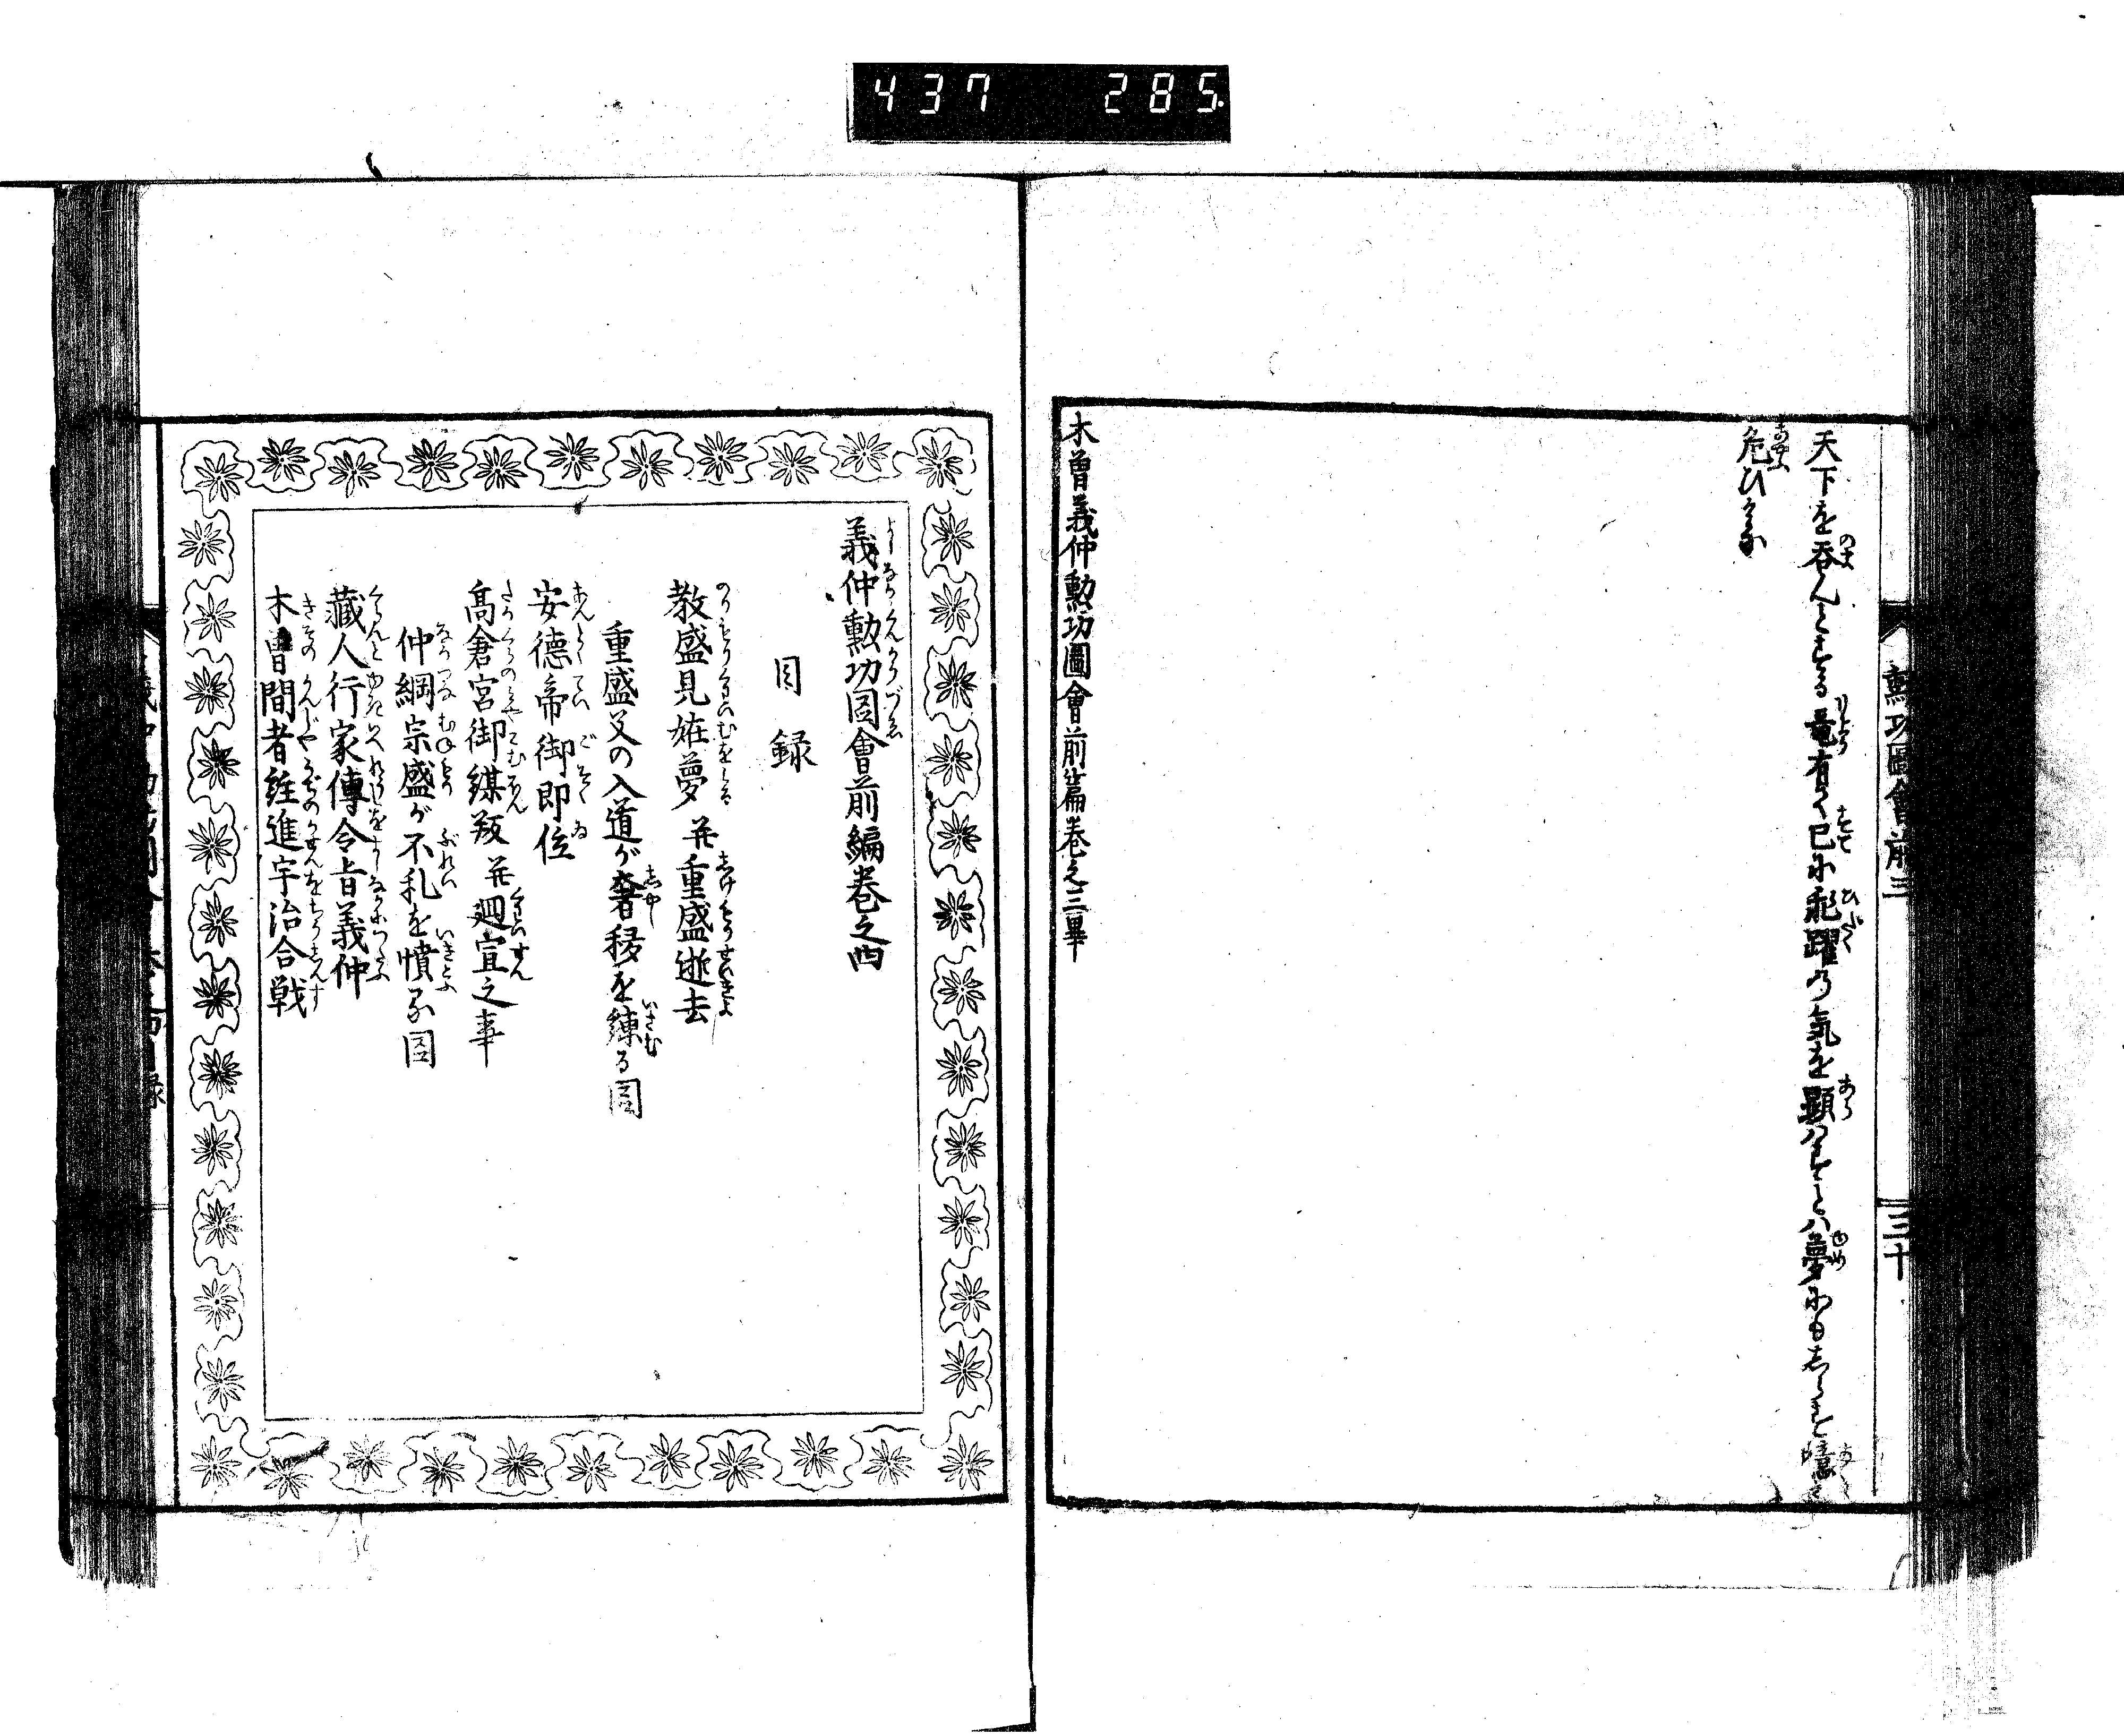 437 285.
勲功圖會前三
三十
天下を吞んとする竜有て已に飛躍の氣を顕はすとハ夢にもしらず
危ひかな
木曽義仲勲功圖會前篇巻之三畢
義仲勲功図會前編巻之四
目録
教盛見妖夢并重盛逝去
重盛父の入道が奢移を練る図
安德帝御即位
髙倉宮御謀叛并廻宣之事
仲綱宗盛が不礼を憤る図
藏人行家傳令旨義仲
木曽間者註進宇治合戦